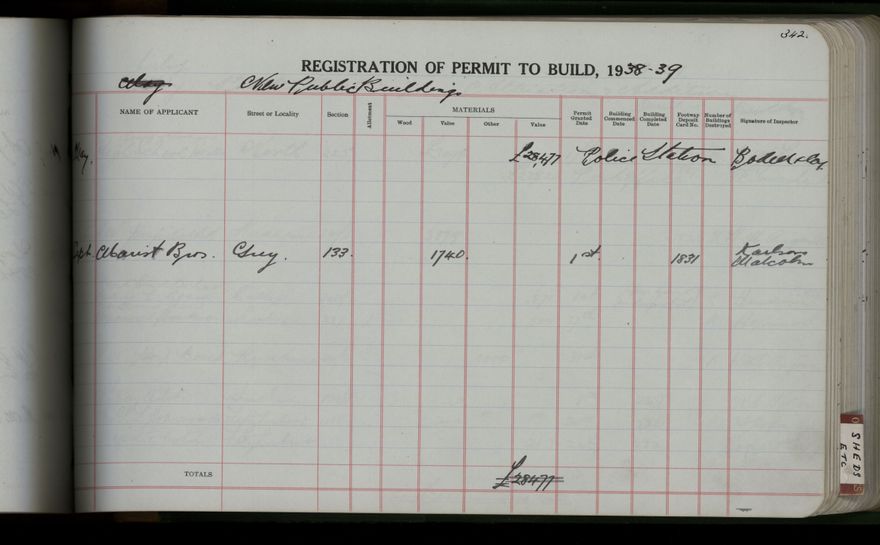 342.
REGISTRATION OF PERMIT TO BUILD, 1938-39
New Public Buildings
NAME OF APPLICANT Street or Locality Section Allotment MATERIALS Permit Granted Date Building Commenced Date Building Completed Date Footway Deposit Card No. Number of Buildings Destroyed Signature of Inspector
Wood Value Other Value
May. £28,477 Police Station
Sept. Marist Bros. Grey. 133. 1740. 1st. 1831 Karlson
Malcolm
TOTALS £28477
SHEDS
ETC